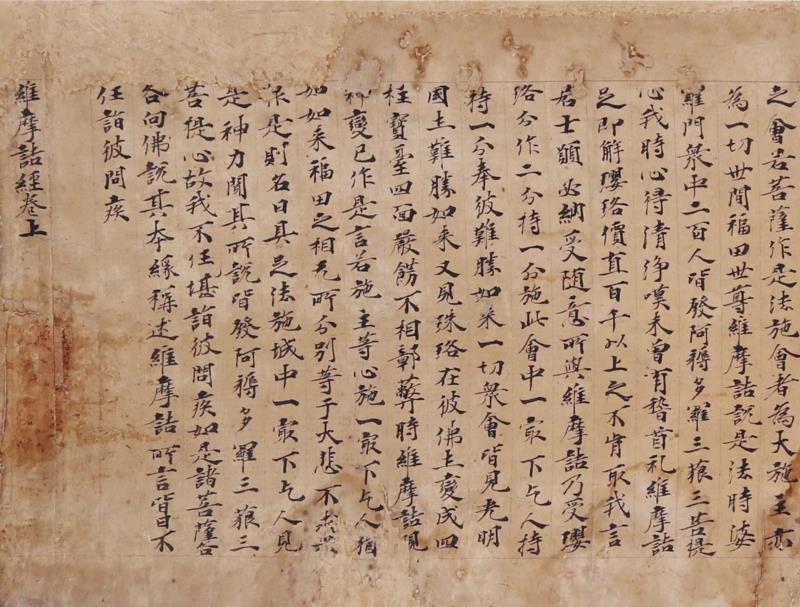 之會若菩薩作是法施會者為大施主亦
為一切世間福田世尊維摩詰說是法時婆
羅門衆中二百人皆發阿耨多羅三藐三菩提
心我時心得清淨嘆未曾有稽首礼維摩詰
足即解瓔珞價直百千以上之不肯取我言
居士願必納受随意所與維摩詰乃受瓔
珞分作二分持一分施此會中一最下乞人持
持一分奉彼難勝如来一切衆會皆見光明
國土難勝如来又見珠珞在彼佛上變成四
柱寶臺四面嚴飭不相鄣蔽時維摩詰現
神變已作是言若施主等心施一最下乞人猶
如如来福田之相无所分別等于大悲不求果
報是則名曰具足法施城中一最下乞人見
是神力聞其所說皆發阿耨多羅三藐三
菩提心故我不任堪詣彼問疾如是諸菩薩各
各向佛說其本緣稱述維摩詰所言皆曰不
任詣彼問疾
維摩詰經卷上